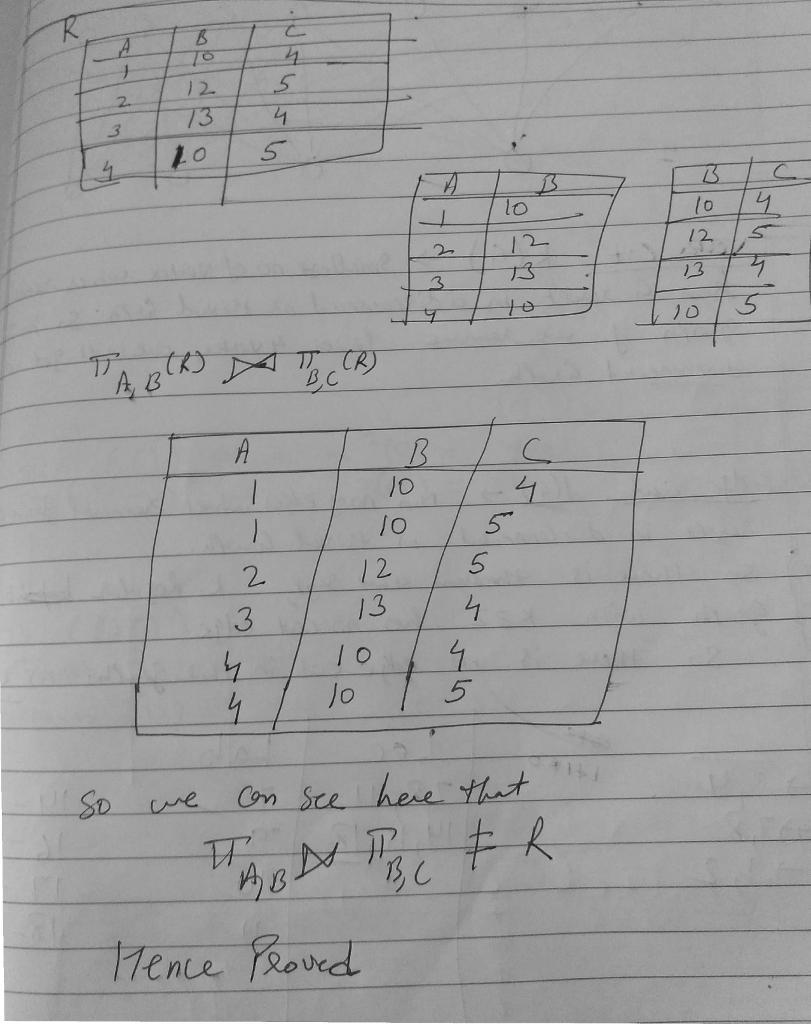 R
A B C
1 10 4
2 12 5
3 13 4
4 10 5
A B
1 10
2 12
3 13
4 10
B C
10 4
12 5
13 4
10 5
π A, B (R) ⋈ π B, C (R)
A B C
1 10 4
1 10 5
2 12 5
3 13 4
4 10 4
4 10 5
So we can see here that
π A,B ⋈ π B,C ≠ R
Hence Proved